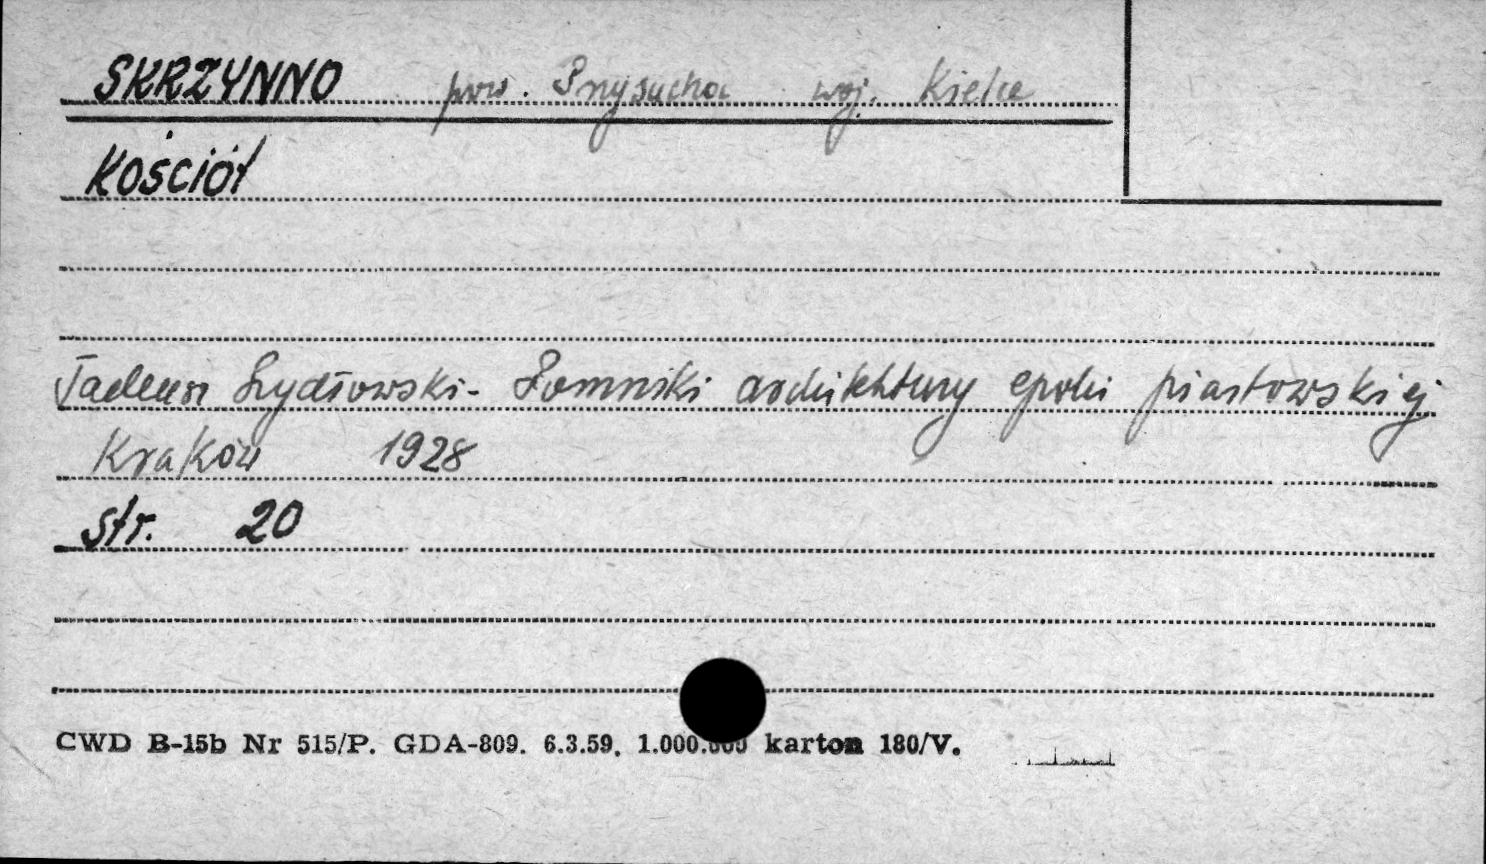 SKRZYNNO pow. Przysucha woj. Kielce
Kościół
Tadeusz Szydłowski - Pomniki architektury epoki piastowskiej
Kraków 1928
str. 20
CWD B-15b Nr 515/P. GDA-809. 6.3.59. 1.000.000 karton 180/V.